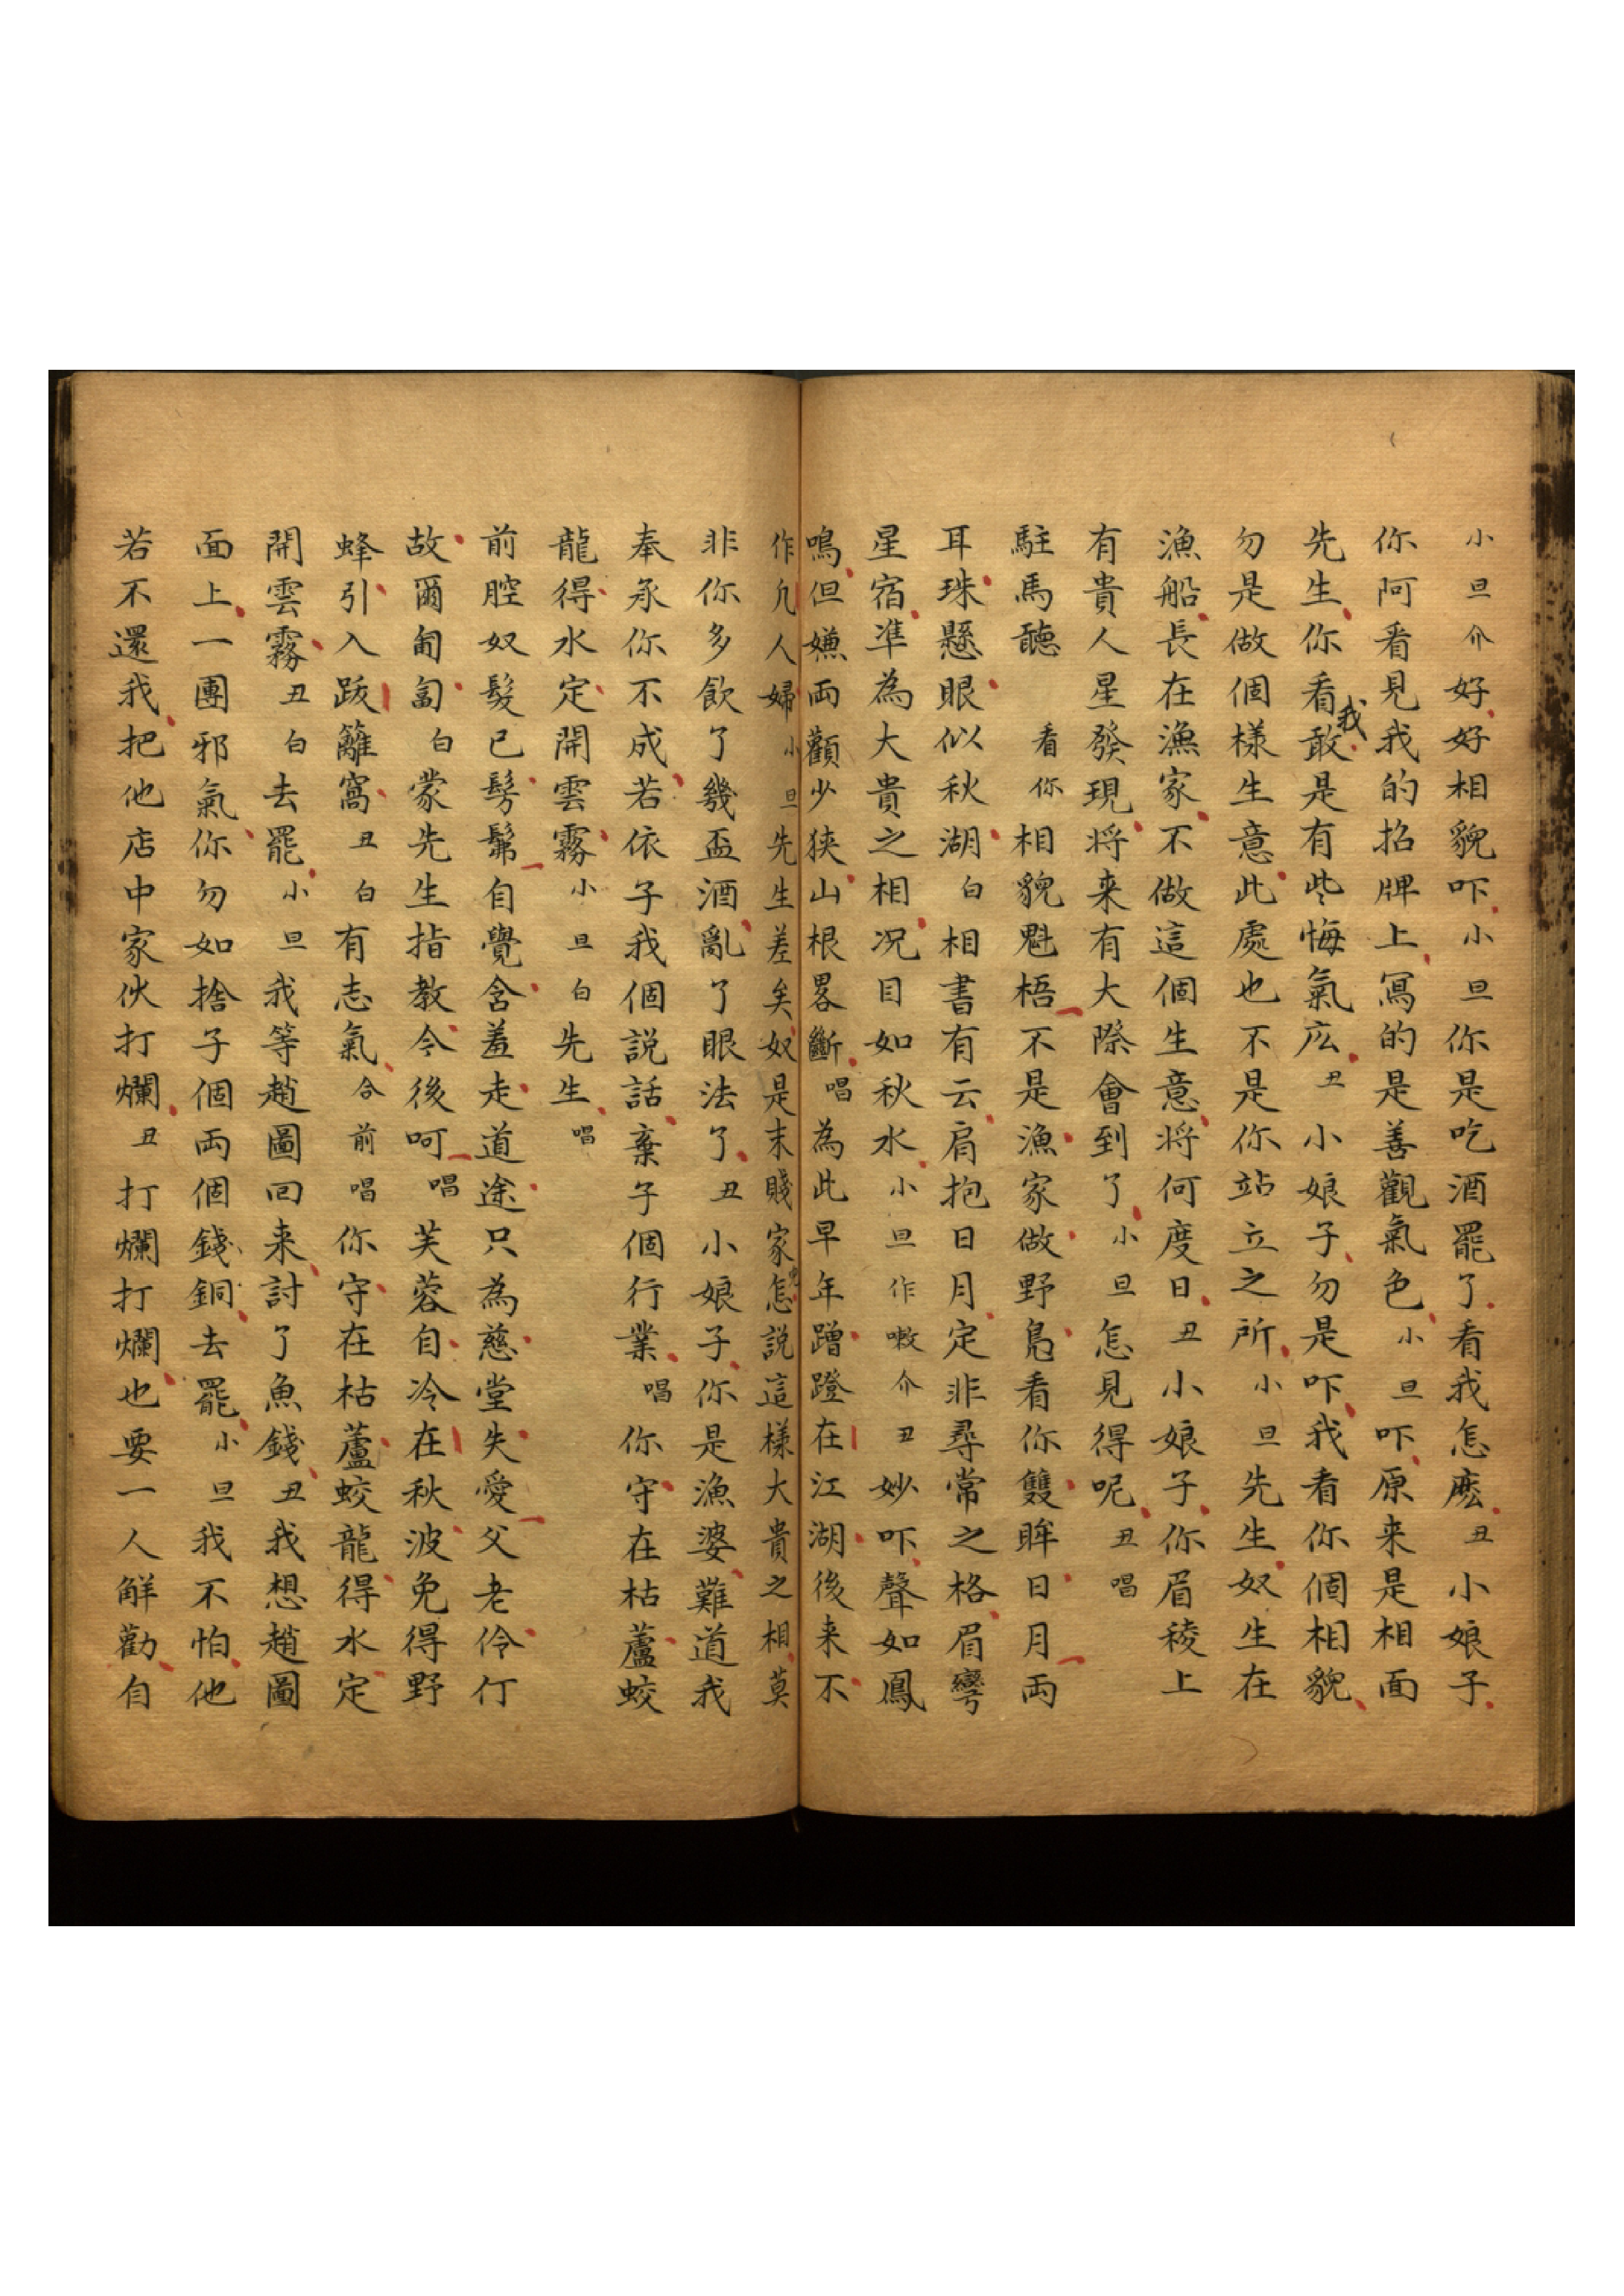 小旦介好好相貌吓小旦你是吃酒罷了看我怎麽丑小娘子
你阿看見我的招牌上寫的是善觀氣色小旦吓原来是相面
先生你看我敢是有些悔氣広丑小娘子勿是吓我看你個相貌
勿是做個樣生意此處也不是你站立之所小旦先生奴生在
漁船長在漁家不做這個生意将何度日丑小娘子你眉稜上
有貴人星發現将来有大際會到了小旦怎見得呢丑唱
駐馬聽看你相貌魁梧不是漁家做野鳧看你雙眸日月両
耳珠懸眼似秋湖白相書有云肩抱日月定非尋常之格眉彎
星宿準為大貴之相况目如秋水小旦作嗽介丑妙吓聲如鳳
鳴但嫌両顴少狭山根畧斷唱為此早年蹭蹬在江湖後来不
作凢人婦小旦先生差矣奴是末賤家怎説這樣大貴之相莫
非你多飲了幾盃酒亂了眼法了丑小娘子你是漁婆難道我
奉承你不成若依子我個説話棄子個行業唱你守在枯蘆蛟
龍得水定開雲霧小旦白先生唱
前腔奴髮已髣髴自覺含羞走道途只為慈堂失愛父老伶仃
故爾匍匐白蒙先生指教令後呵唱芙蓉自冷在秋波免得野
蜂引入跋籬窩丑白有志氣合前唱你守在枯蘆蛟龍得水定
開雲霧丑白去罷小旦我等趙圖回来討了魚錢丑我想趙圖
面上一團邪氣你勿如捨子個両個錢銅去罷小旦我不怕他
若不還我把他店中家伙打爛丑打爛打爛也要一人解勸自